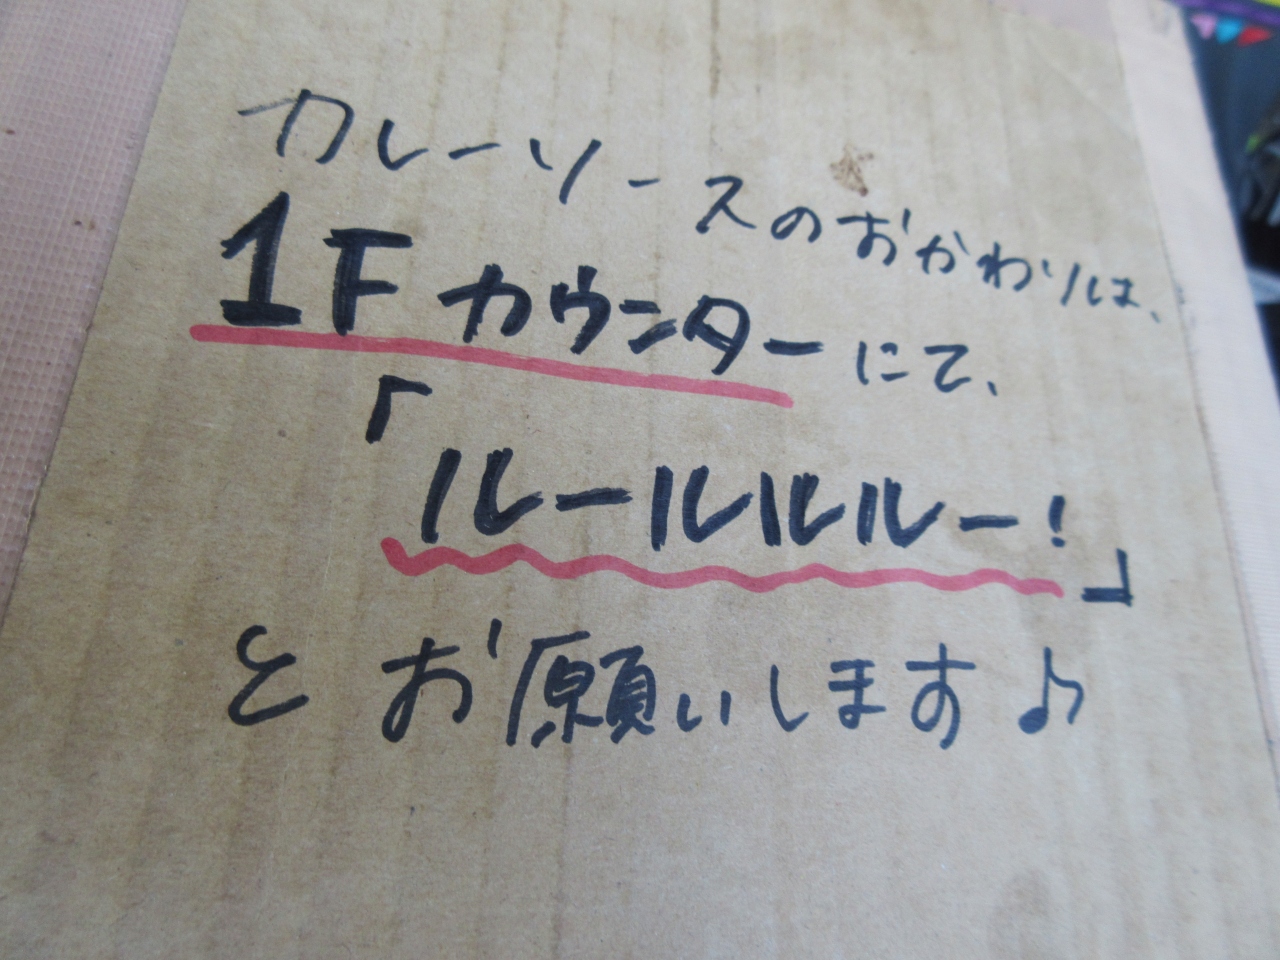 カレーソースのおかわりは、
1Fカウンターにて、
「ルールルルー!」
とお願いします♪